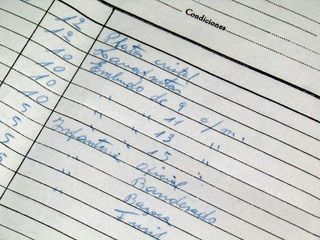 Condiciones
12 Platos cristal
12 Lavafrutas
10 Embudo de 9 c/m.
10 " " 11 "
10 " " 13 "
5 " " 15 "
5 Infanteria oficial
5 " Banderado
" Bazoca
" Fusil